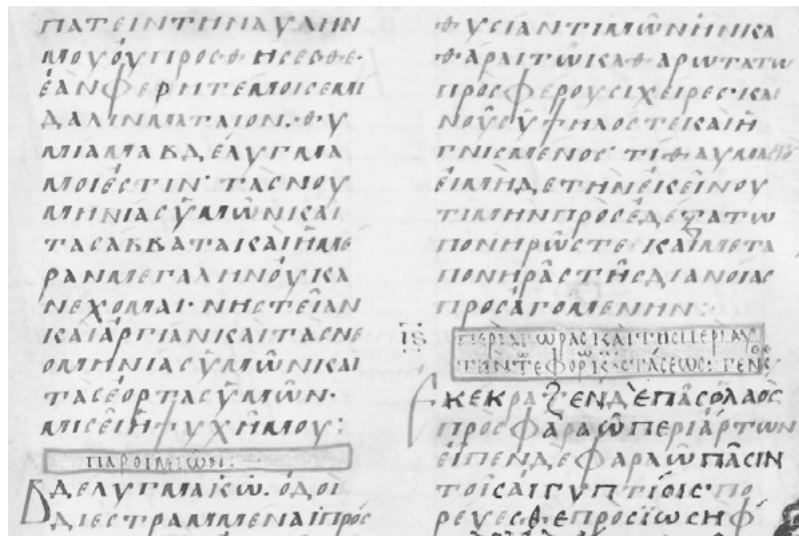 ΠΑΤΕΙΝΤΗΝΑΥΛΗΝ
ΜΟΥΟΥΠΡΟΣΘΗΣΕΣΘΕ·
ΕΑΝΦΕΡΗΤΕΜΟΙΣΕΜΙ
ΔΑΛΙΝΜΑΤΑΙΟΝ·ΘΥ
ΜΙΑΜΑΒΔΕΛΥΓΜΑ
ΜΟΙΕΣΤΙΝ·ΤΑΣΝΟΥ
ΜΗΝΙΑΣΥΜΩΝΚΑΙ
ΤΑΣΑΒΒΑΤΑΚΑΙΗΜΕ
ΡΑΝΜΕΓΑΛΗΝΟΥΚΑ
ΝΕΧΟΜΑΙ·ΝΗΣΤΕΙΑΝ
ΚΑΙΑΡΓΙΑΝΚΑΙΤΑΣΝΕ
ΟΜΗΝΙΑΣΥΜΩΝΚΑΙ
ΤΑΣΕΟΡΤΑΣΥΜΩΝ·
ΜΙΣΕΙΗΨΥΧΗΜΟΥ:
ΠΑΡΟΙΜΙΩΝ:
ΒΔΕΛΥΓΜΑΚΩ. ΟΔΟΙ
ΔΙΕΣΤΡΑΜΜΕΝΑΙΠΡΟΣ
ΘΥΣΙΑΝΤΙΜΩΝΗΝΚΑ
ΘΑΡΑΙΤΩΚΑΘΑΡΩΤΑΤΩ
ΠΡΟΣΦΕΡΟΥΣΙΧΕΙΡΕΣ·ΚΑΙ
ΝΟΥΣΥΨΗΛΟΣΤΕΚΑΙΗ
ΓΝΙΣΜΕΝΟΣ·ΤΙΘΑΥΜΑΣΤΟ
ΕΙΜΗΔΕΤΗΝΕΚΕΙΝΟΥ
ΤΙΜΗΝΠΡΟΣΕΔΕΞΑΤΩ
ΠΟΝΗΡΩΣΤΕ·ΚΑΙΜΕΤΑ
ΠΟΝΗΡΑΣΤΗΣΔΙΑΝΟΙΑΣ
ΠΡΟΣΑΓΟΜΕΝΗΝ:
ΙϚ ΠΕΡΙΑΓΩΡΑΣΙΚΑΙΤΗΣΠΕΡΙΑΥ
ΕΚΕΚΡΑΞΕΝΔΕΠΑΣΟΛΑΟΣ
ΠΡΟΣΦΑΡΑΩΠΕΡΙΑΡΤΩΝ
ΕΙΠΕΝΔΕΦΑΡΑΩΠΑΣΙΝ
ΤΟΙΣΑΙΓΥΠΤΙΟΙΣ·ΠΟ
ΡΕΥΕΣΘΕΠΡΟΣΙΩΣΗΦ